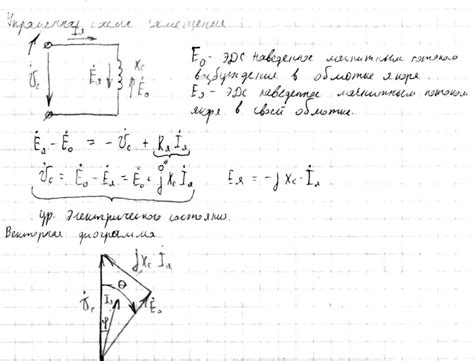 Упрощенная схема замещения
İя
U̇c Ėя Xc Ėo
Eo - ЭДС наведенное магнитным потоком
возбуждения в обмотке якоря.
Eя - ЭДС наведенное магнитным потоком
якоря в своей обмотке.
Ėя - Ėo = -U̇c + Rя İя
0
U̇c = Ėo - Ėя = Ėo + jXc İя Eя = -jXc · İя
ур. Электрического состояния.
Векторная диаграмма
jXc İя
U̇c İя θ Ėo
φ